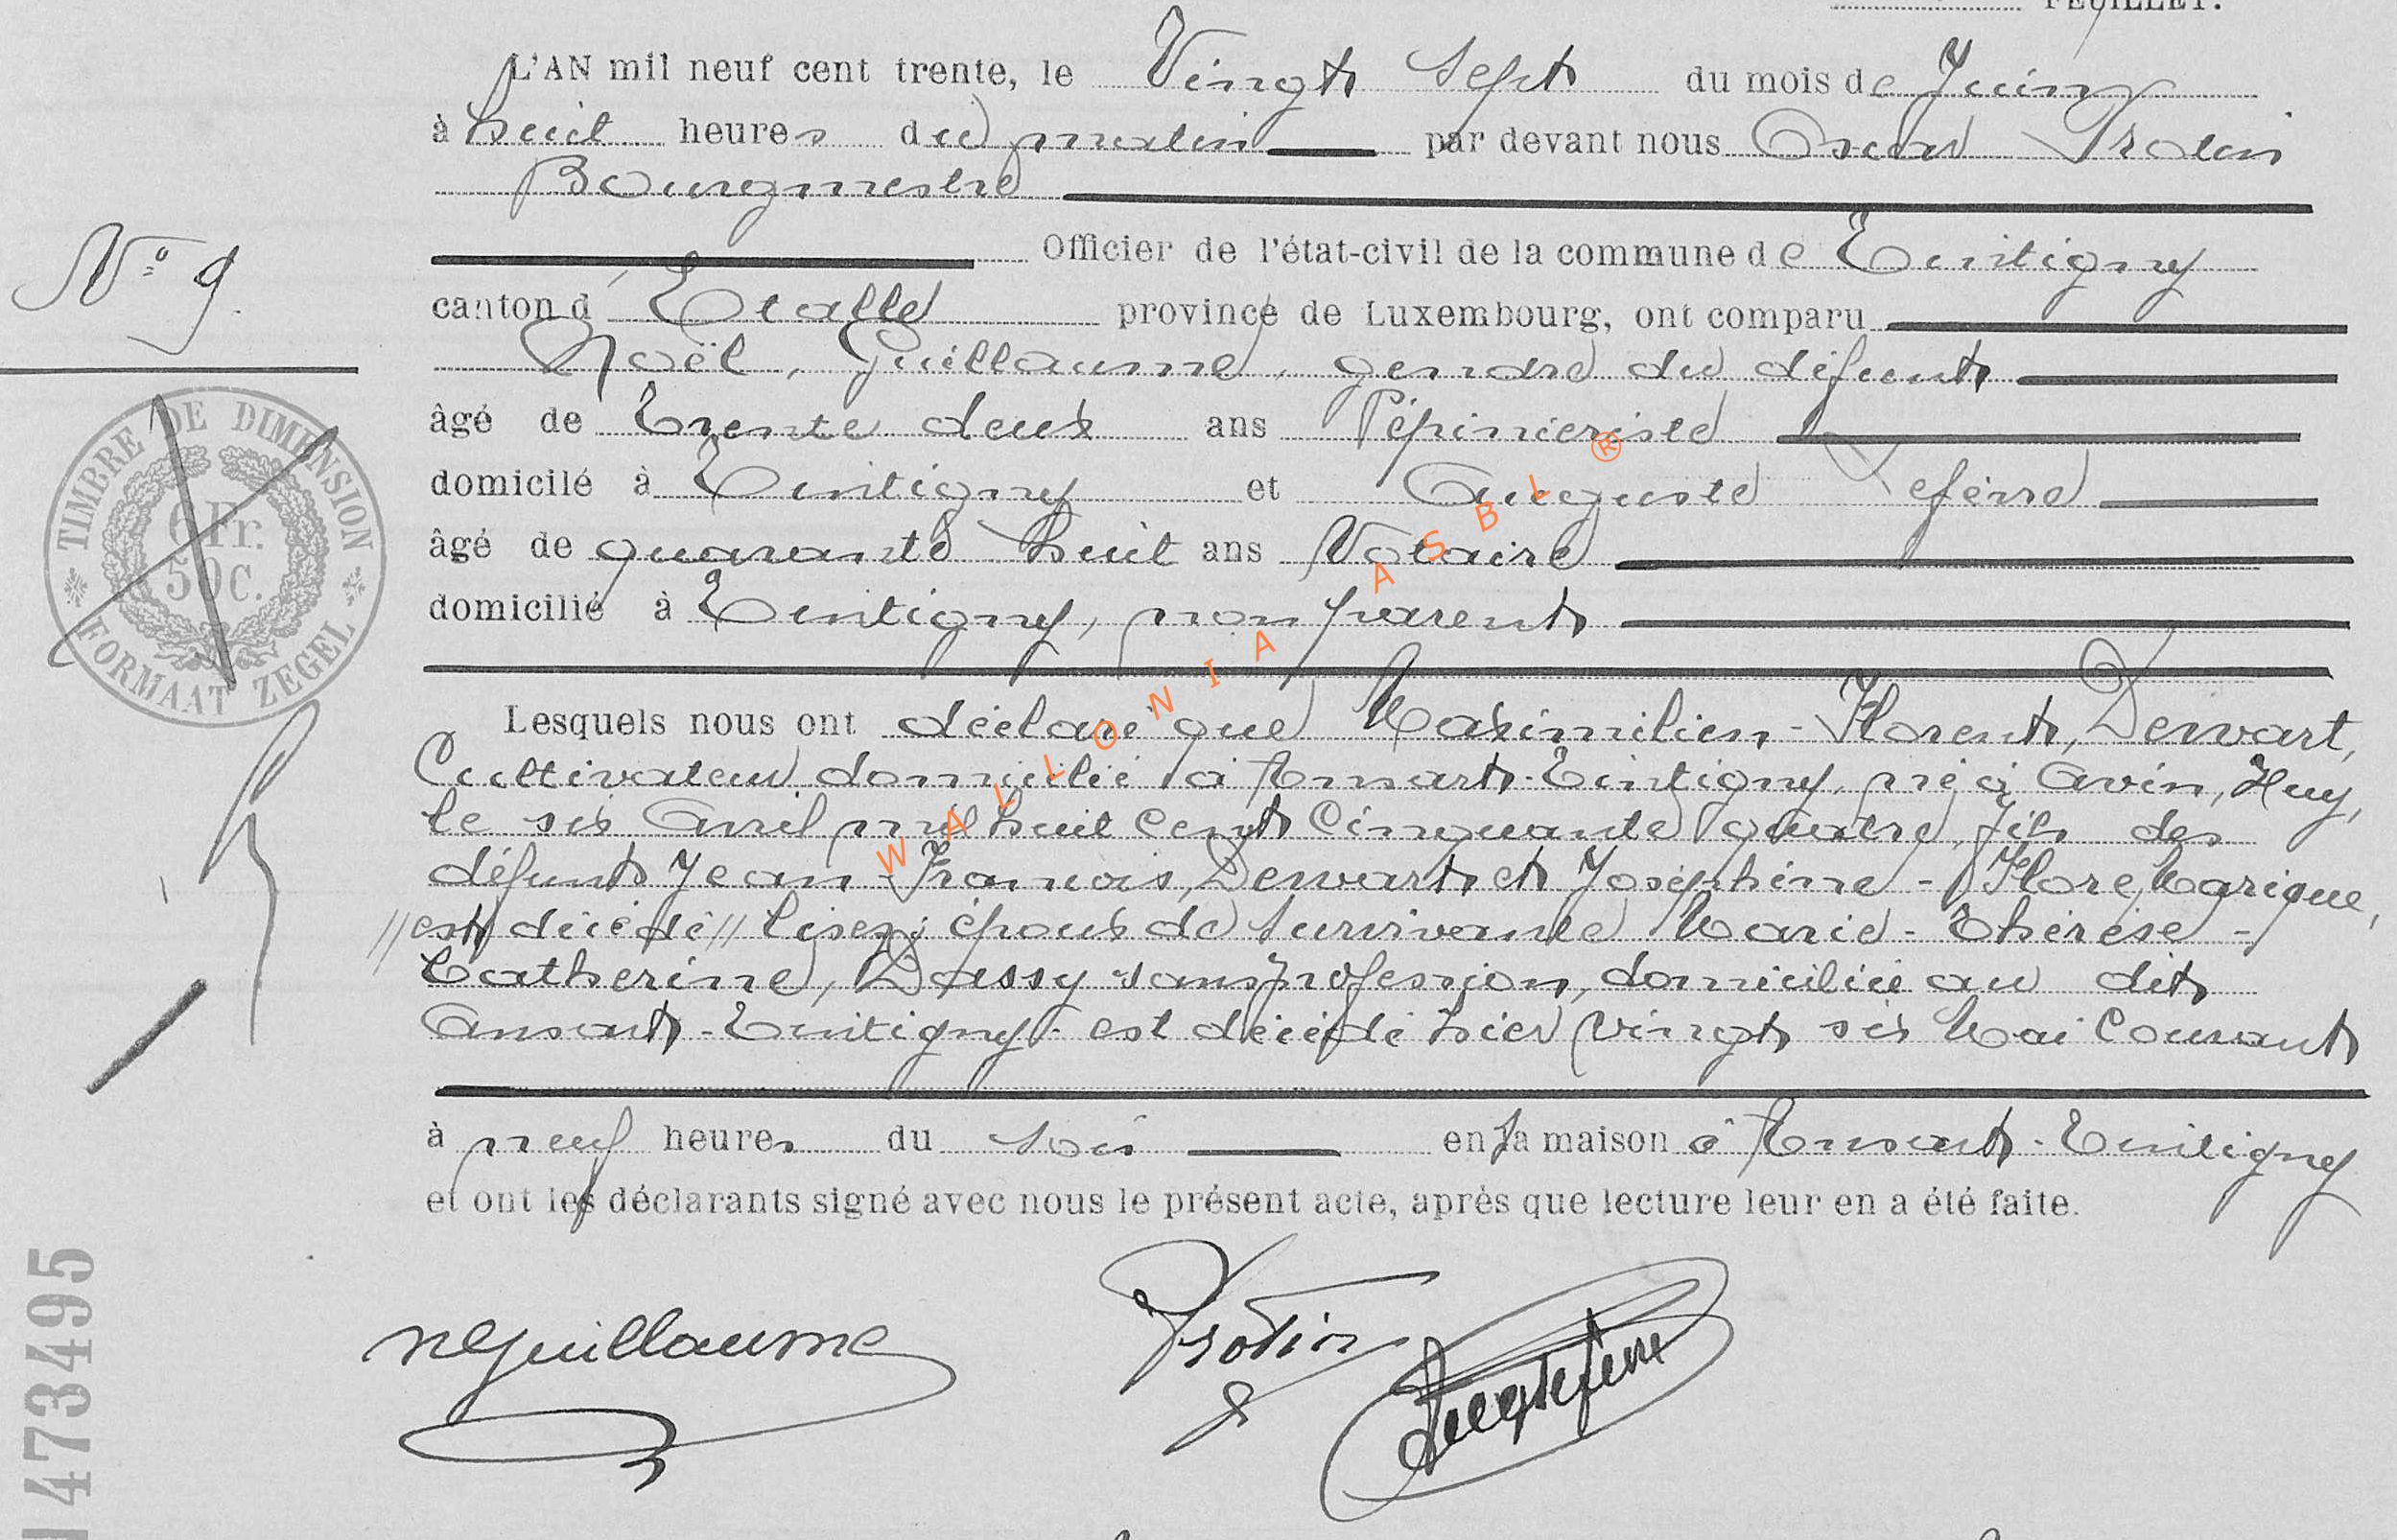 FEUILLET.
L'AN mil neuf cent trente, le Vingt Sept du mois de Juin
à huit heures du matin par devant nous Oscar Protin
Bourgmestre
Officier de l'état-civil de la commune de Tintigny
N° 9.
canton d'Etalle province de Luxembourg, ont comparu
Noël, Guillaume, gendre du défunt
âgé de Trente deux ans Pépiniériste
domicilé à Tintigny et Auguste Lefèvre
âgé de quarante huit ans Notaire
domicilié à Tintigny, non parent
TIMBRE DE DIMENSION
6 Fr.
50 C.
FORMAAT ZEGEL
Lesquels nous ont déclaré que Maximilien-Florent, Dewart,
Cultivateur domicilié à Ansart-Tintigny, né à Avin, Huy,
le six Avril mil huit cent cinquante quatre, fils des
défunts Jean-François, Dewart et Joséphine-Flore, Marique,
//est décédé// lisez: époux de survivante Marie-Thérèse-
Catherine, Dassy sans profession, domiciliée au dit
Ansart-Tintigny- est décédé hier vingt six Mai Courant
à neuf heures du soir en sa maison à Ansart-Tintigny
et ont les déclarants signé avec nous le présent acte, après que lecture leur en a été faite.
NGuillaume Protin
AugLefèvre
473495
WALLONIA ASBL ®